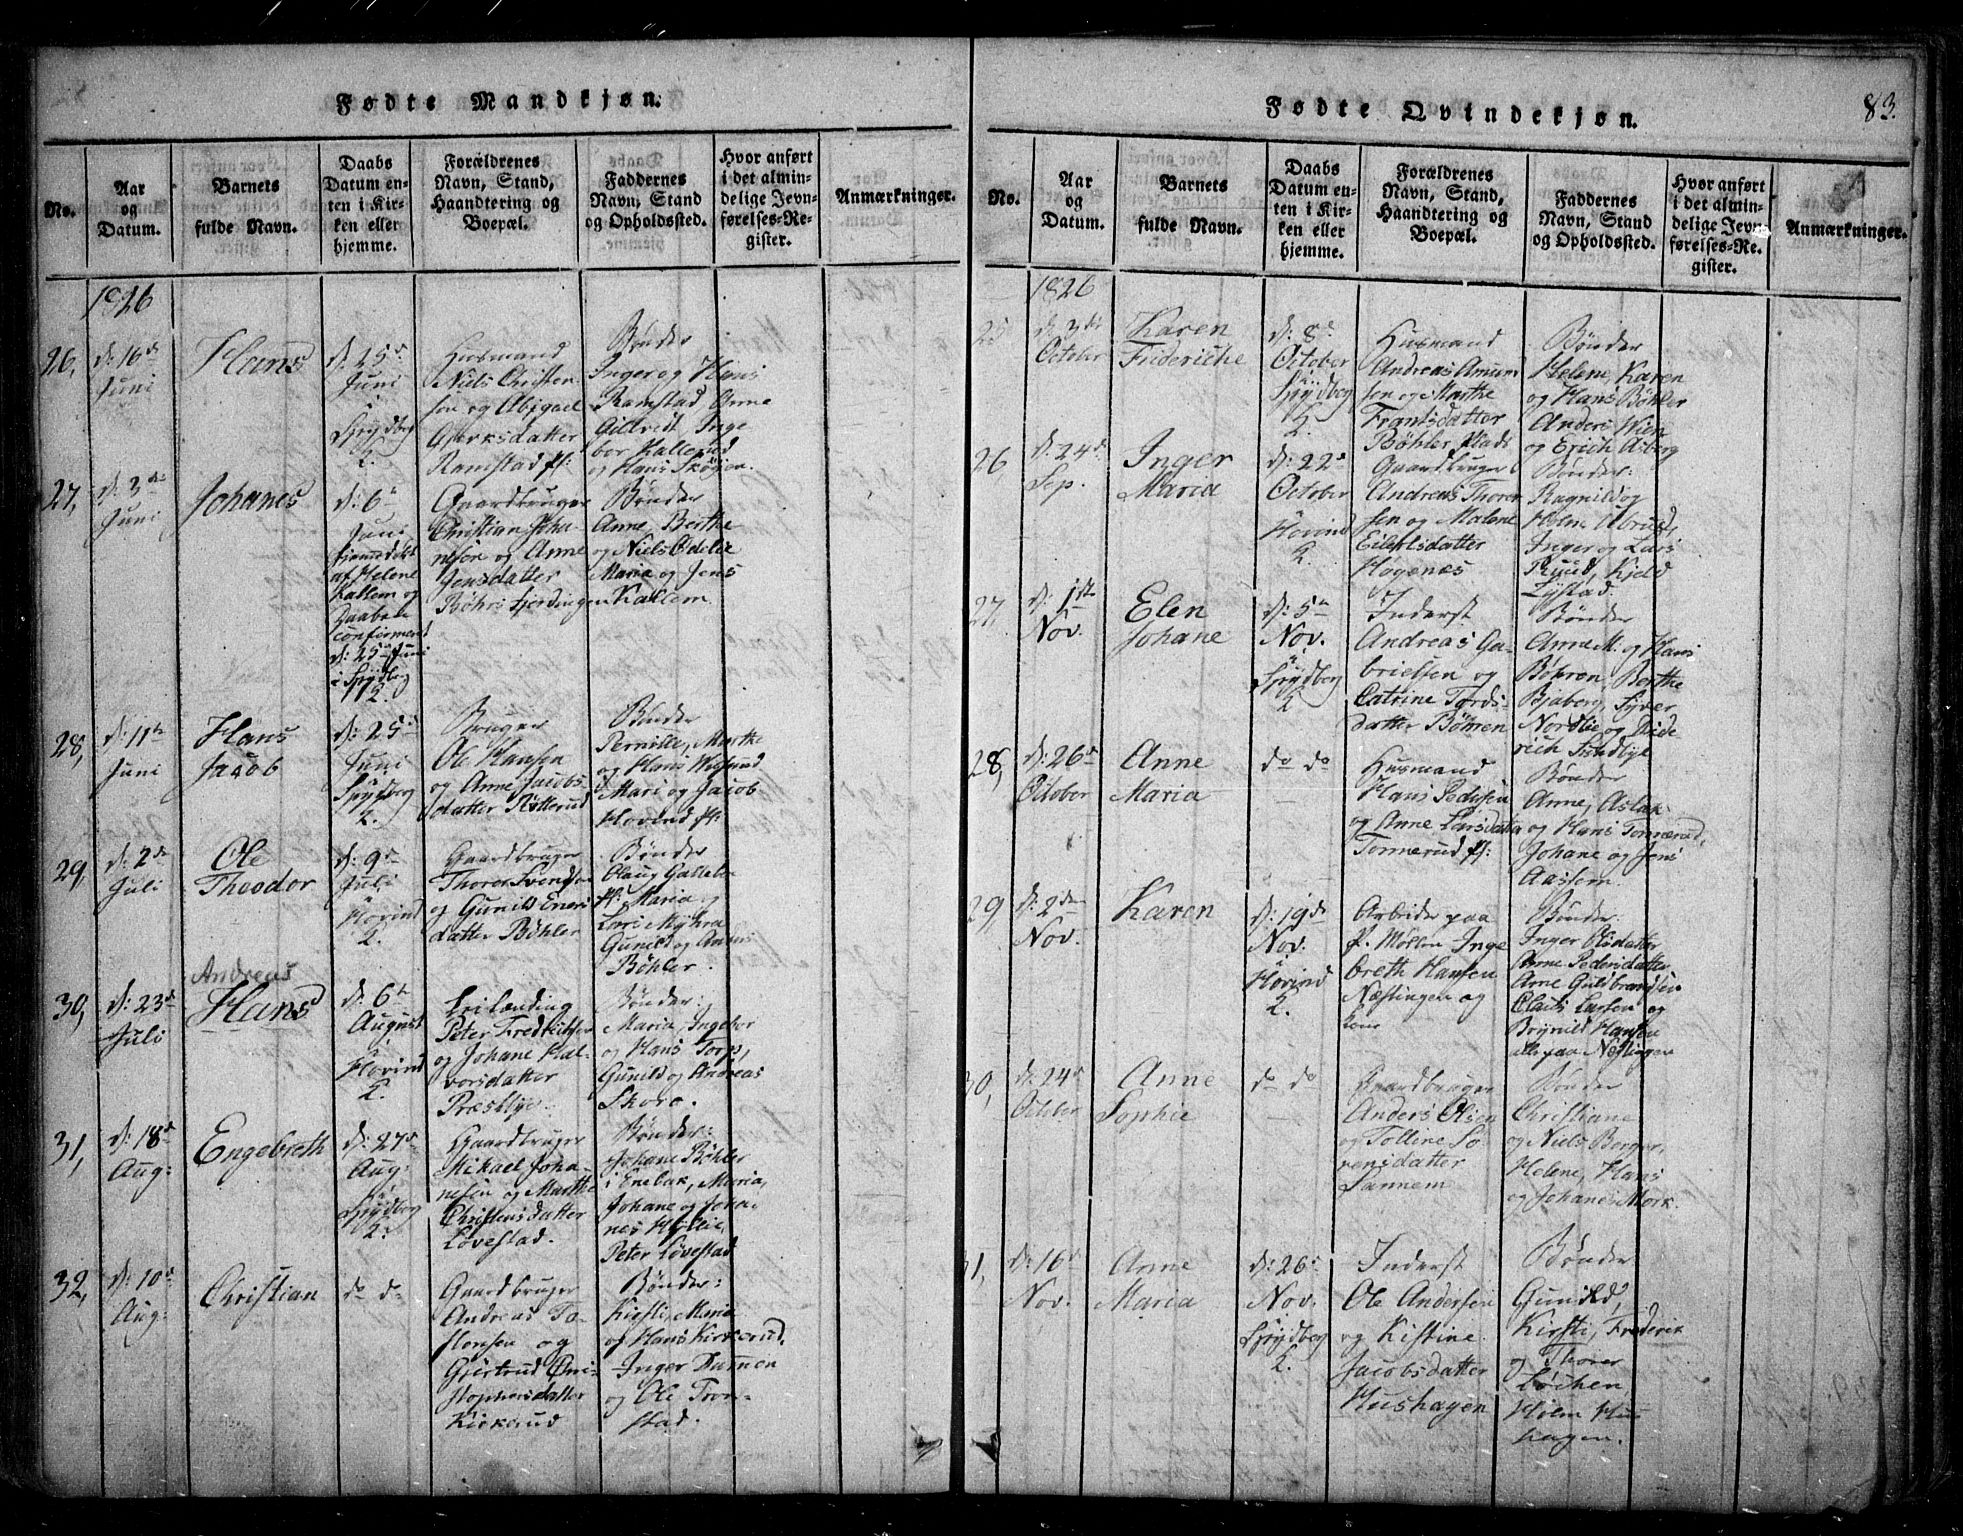 Fødte Mandkjøn.
No.
Aar
og
Datum.
Barnets
fulde Navn.
Daabs
Datum en-
ten i Kir-
ken eller
hjemme.
Forældrenes
Navn, Stand,
Haandtering og
Boepæl.
Faddernes
Navn, Stand
og Opholdssted.
Hvor anført
i det almin-
delige Jevn-
førelses-Re-
gister.
Anmærkninger.
1826
26,
d: 16de
Juni
Hans
d: 25de
Juni
i
Spydberg
K.
Husmand
Niels Christen
sen og Abigael
datter
Ramstad
Bønder
Inger og Hans
Ramstad Anne
Inge
bor Kallerud
og Hans Skogen.
27,
d: 3de
Juni
Johanes
d: 6te
Juni
hjemmedøbt
af Helene
Kallem og
Daaben
confirmeret
d: 25de Juni
i Spydberg
K.
Gaardbruger
Christian Joha
nesen og Anne
Jensdatter
Bøhrs fjerdingen
Bønder
Anne, Berthe
og Niels Odelie
Maria og Jens
Kallem.
28,
d: 11te
Juni
Hans
Jacob
d: 25de
Juni
Spydberg
K.
Bruger
Ole Hansen
og Anne Jacobs
datter Rotterud
Bønder
Pernille, Marthe
og Hans
Mari og Jacob
Hovind
29,
d: 2de
Juli
Ole
Theodor
d: 9de
Juli
i
Hovind
K.
Gaardbruger
Thorer Svendsen
og Gunild Eners
datter Bøhler
Bønder
Olaug
Maria,
Lars Myhra
Gunild og
Bøhler.
30,
d: 23de
Juli
Andreas
Hans
d: 6te
August
i
Hovind
K.
Leilænding
Peter Fredrichsen
og Johane Hal-
vorsdatter
Præstlye.
Bønder:
Maria, Ingebor
og Hans Torp,
Gunild og Andreas
Skoro.
31,
d: 18de
Aug:
Engebreth
d: 27de
Aug:
i
Spydberg
K.
Gaardbruger
Mikael Joha-
nesen og Marthe
Christensdatter
Løvestad.
Bønder:
Johane Bøhler
i Enebak, Maria,
Johane og Joha-
nes Hyllie,
Peter Løvestad
32,
d: 10de
Aug:
Christian
do do
Gaardbruger
Andreas To-
stensen og
Gjertrud Chri-
stophersdatter
Kirkerud
Bønder:
Kirsti, Maria
og Hans Kirkerud,
Inger Dammen
og Ole Tron-
stad.
Fødte Qvindekjøn.
83.
No.
Aar
og
Datum.
Barnets
fulde Navn.
Daabs
Datum en-
ten i Kir-
ken eller
hjemme.
Forældrenes
Navn, Stand,
Haandtering og
Boepæl.
Faddernes
Navn, Stand
og Opholdssted.
Hvor anført
i det almin-
delige Jevn-
førelses-Re-
gister.
Anmærkninger.
1826
25
d: 3de
October
Karen
Frideriche
d: 8de
October
i
Spydberg
K.
Husmand
Andreas Amund
sen og Marthe
Frantsdatter
Bøhler Plads
Bønder
Helene, Karen
og Hans Bøhler
Anders Wien
og Erich Asberg
26,
d: 24de
Sep.
Inger
Maria
d: 22de
October
i
Hovind
K.
Gaardbruger
Andreas Thorer
sen og Malene
Eilertsdatter
Hogenæs
Bønder.
Ragnild og
Helene
Inger og Lars
Ruud, Kjeld
Lystad.
27,
d: 1ste
Nov.
Elen
Johane
d: 5te
Nov.
i
Spydberg
K
Inderst
Andreas Ga-
brielsen og
Catrine Tords-
datter Bøhren
Bønder
Anne M. og Hans
Bøhren, Berthe
Bjaberg, Syver
Nordlie og Dide
rich Sundlye
28,
d: 26de
October
Anne
Maria
do do
Husmand
Hans Pedersen
og Anne Larsdatter
Tonnerud
Bønder
Anne, Aslak
og Hans Tonnerud,
Johane og Jens
Aaslem.
29,
d: 2den
Nov.
Karen
d: 19de
Nov.
i
Hovind
K.
Arbeider paa
P. Møllen Inge
breth Hansen
Næstingen og
kone
Bønder:
Inger Olsdatter
Anne Pedersdatter
Arne Guldbrandsen
Claus Larsen og
Brynild Hansen
alle paa Næstingen
30,
d: 24de
October
Anne
Sophie
do do
Gaardbruger
Anders Olsen
og Tolline So
rensdatter
Sannem
Bønder
Christiane
og Niels Berger,
Helene, Hans
og Johanes Mork.
31,
d: 16de
Nov.
Anne
Maria
d: 26de
Nov.
i
Spydberg
K.
Inderst
Ole Andersen
og Kistine
Jacobsdatter
Hushagen
Bønder
Gunild,
Kirsti, Frederik
og Thorer
Løchen,
Holm Hus
hagen.